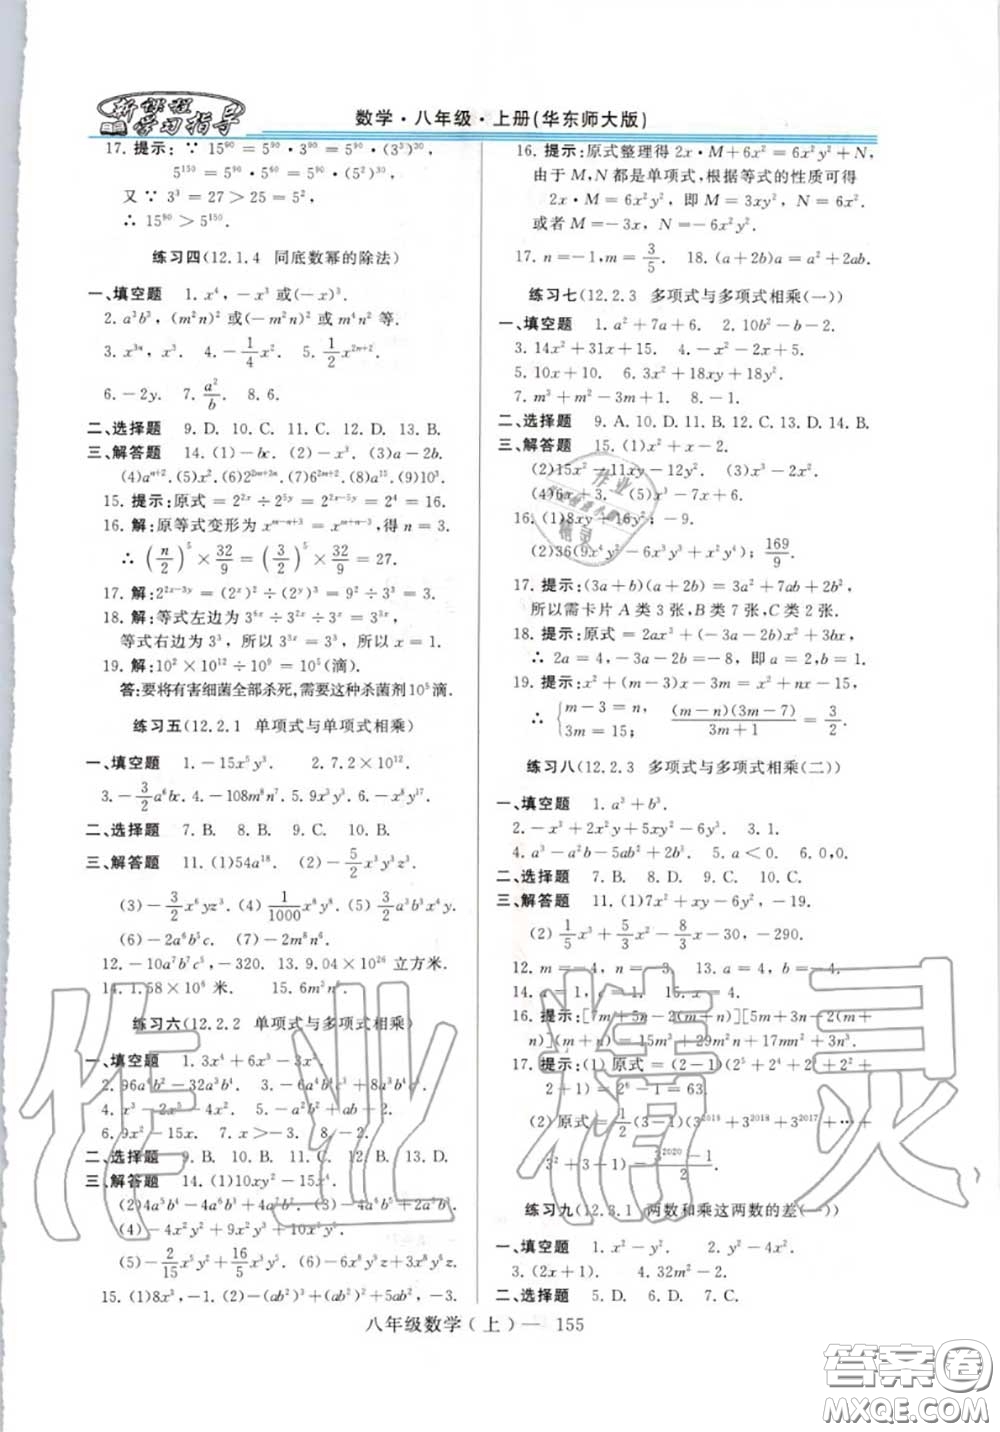 新课程
学习指导
数学·八年级·上册(华东师大版)
17. 提示: ∵ 15⁹⁰ = 5⁹⁰ · 3⁹⁰ = 5⁹⁰ · (3³)³⁰,
5¹⁵⁰ = 5⁹⁰ · 5⁶⁰ = 5⁹⁰ · (5²)³⁰,
又 ∵ 3³ = 27 > 25 = 5²,
∴ 15⁹⁰ > 5¹⁵⁰.
练习四(12.1.4 同底数幂的除法)
一、填空题 1. x⁴, -x³ 或(-x)³.
2. a³b³, (m²n)² 或(-m²n)² 或 m⁴n² 等.
3. x³ⁿ, x³. 4. -1/4 x². 5. 1/2 x²ⁿ⁺².
6. -2y. 7. a²/b. 8. 6.
二、选择题 9. D. 10. C. 11. C. 12. D. 13. B.
三、解答题 14. (1)-bc. (2)-x³. (3)a-2b.
(4)aⁿ⁺². (5)x². (6)2²ᵐ⁺³ⁿ. (7)6²ᵐ⁺². (8)a⁵. (9)10³.
15. 提示:原式 = 2²ˣ ÷ 2⁵ʸ = 2²ˣ⁻⁵ʸ = 2⁴ = 16.
16. 解:原等式变形为 xᵐ⁻ⁿ⁺³ = xᵐ⁺ⁿ⁻³, 得 n = 3.
∴ (n/2)⁵ × 32/9 = (3/2)⁵ × 32/9 = 27.
17. 解: 2²ˣ⁻³ʸ = (2ˣ)² ÷ (2ʸ)³ = 9² ÷ 3³ = 3.
18. 解:等式左边为 3⁶ˣ ÷ 3²ˣ ÷ 3ˣ = 3³ˣ,
等式右边为 3³, 所以 3³ˣ = 3³, 所以 x = 1.
19. 解: 10² × 10¹² ÷ 10⁹ = 10⁵(滴).
答:要将有害细菌全部杀死,需要这种杀菌剂 10⁵ 滴.
练习五(12.2.1 单项式与单项式相乘)
一、填空题 1. -15x⁵y³. 2. 7.2×10¹².
3. -3/2 a⁶bc. 4. -108m⁸n⁷. 5. 9x³y³. 6. -x⁸y¹⁷.
二、选择题 7. B. 8. B. 9. C. 10. B.
三、解答题 11. (1)54a¹⁸. (2)-5/2 x³y³z³.
(3)-3/2 x⁶yz³. (4) 1/1000 x⁸y⁸. (5) 3/2 a³b³x⁴y.
(6)-2a⁶b⁵c. (7)-2m⁸n⁶.
12. -10a⁷b⁷c⁵, -320. 13. 9.04×10²⁶ 立方米.
14. 1.58×10⁸ 米. 15. 6m²n⁵.
练习六(12.2.2 单项式与多项式相乘)
一、填空题 1. 3x⁴+6x³-3x².
2. 96a⁴b²-32a³b⁴.
4. x³-2x²-4x. 5. -a²b²+ab+2.
6. 9x²-15x. 7. x>-3. 8. -2.
二、选择题 9. B. 10. B. 11. C. 12. B. 13. D.
三、解答题 14. (1)10xy²-15x⁴.
(2)4a⁵b³-4a⁶b³+4a⁷b². (3)
(4)-4x⁴y²+9x²y²+2xy⁴.
(5)-2/15 x⁷y²+16/5 x⁵y³. (6)-6x³y⁶z+3x⁴y⁸z.
15. (1)8x³, -1. (2)-(ab²)³+(ab²)²+5ab², -3.
16. 提示:原式整理得 2x·M+6x² = 6x²y²+N,
由于 M、N 都是单项式,根据等式的性质可得
2x·M = 6x²y², 即 M = 3xy², N = 6x².
或者 M = -3x, N = -6x²y².
17. n = -1, m = 3/5. 18. (a+2b)a = a²+2ab.
练习七(12.2.3 多项式与多项式相乘(一))
一、填空题 1. a²+7a+6. 2. 10b²-b-2.
3. 14x²+31x+15. 4. -x²-2x.
5. 10x-10. 6. 33x²+18xy+18y².
7. m³+m²-3m+1. 8. -1.
二、选择题 9. A. 10. D. 11. B. 12. C. 13. D. 14. B.
三、解答题 15. (1)x²+x-2.
(2)15x²-11xy-12y². (3)-3x²-2.
(4)6x+3. (5)-x³-7x.
16. (1)8xy+16y²; -9.
(2)36(9x⁴y²-6x³y³+x²y⁴); 169/9.
17. 提示:(3a+b)(a+2b) = 3a²+7ab+2b²,
所以需卡片 A 类 3 张, B 类 7 张, C 类 2 张.
18. 提示:原式 = 2ax²+(-3a-2b)x+3bx,
∴ 2a = 4, -3a-2b = -8, 即 a = 2, b = 1.
19. 提示: x²+(m-3)x-3m = x²+nx-15,
∴ { m-3 = n, 3m = 15, (m-n)(3m-7)/(3m+1) = 3/2.
练习八(12.2.3 多项式与多项式相乘(二))
一、填空题 1. a³+b³.
2. -x³+2x²y+5xy²-6y³. 3. 1.
4. a³-a²b-5ab²+2b³. 5. a<0. 6. 0,0.
二、选择题 7. B. 8. D. 9. D. 10. C.
三、解答题 11. (1)7x²+xy-6y², -19.
(2) 1/5 x³+5/3 x²-8/3 x-30, -290.
12. m = -4, n = -4. 13.
14. a = 1, c = 1. 15. x = 4.
16. 提示: [7m+5n-2(m+n)][5m+3n-2(m+
n)](m+n) = 15m³+29m²n+17mn²+3n³.
17. 提示: (1) 原式 = (2-1)(2⁵+2⁴+2³+2²+
2+1) = 2⁶-1 = 63.
(2) 原式 = 1/2(3-1)(3²⁰¹⁹+3²⁰¹⁸+3²⁰¹⁷+…+
3²⁰²⁰-1/2.
练习九(12.3.1 两数和乘这两数的差(一))
一、填空题 1. x²-y². 2. y²-4x².
3. (2x+1). 4. 32m²-2.
二、选择题 5. D. 6. D. 7. C. 8. D. 9. B.
八年级数学(上)— 155
作业精灵
答案圈
MXQE.COM